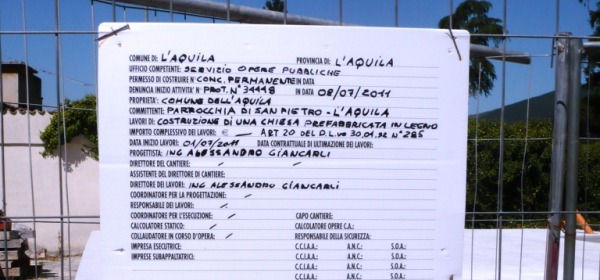 COMUNE DI: L'AQUILA PROVINCIA DI: L'AQUILA
UFFICIO COMPETENTE: SERVIZIO OPERE PUBBLICHE
PERMESSO DI COSTRUIRE N° CONC. PERMANENTE IN DATA
DENUNCIA INIZIO ATTIVITA' N° PROT. N° 34418 IN DATA 08/07/2011
PROPRIETA': COMUNE DELL'AQUILA
COMMITTENTE: PARROCCHIA DI SAN PIETRO - L'AQUILA
LAVORI DI: COSTRUZIONE DI UNA CHIESA PREFABBRICATA IN LEGNO
IMPORTO COMPLESSIVO DEI LAVORI: € — ART 20 DEL D.L.vo 30.01.92 N° 285
DATA INIZIO LAVORI: 01/07/2011 DATA CONTRATTUALE DI ULTIMAZIONE DEI LAVORI:
PROGETTISTA: ING ALESSANDRO GIANCARLI
DIRETTORE DEL CANTIERE: /
ASSISTENTE DEL DIRETTORE DI CANTIERE:
DIRETTORE DEI LAVORI: ING ALESSANDRO GIANCARLI
COORDINATORE PER LA PROGETTAZIONE: /
RESPONSABILE DEI LAVORI: /
COORDINATORE PER L'ESECUZIONE: / CAPO CANTIERE:
CALCOLATORE STATICO: / CALCOLATORE OPERE C.A.:
COLLAUDATORE IN CORSO D'OPERA: / RESPONSABILE DELLA SICUREZZA:
IMPRESA ESECUTRICE: C.C.I.A.A.: A.N.C.: S.O.A.:
IMPRESE SUBAPPALTATRICI: C.C.I.A.A.: A.N.C.: S.O.A.:
C.C.I.A.A.: A.N.C.: S.O.A.:
C.C.I.A.A.: A.N.C.: S.O.A.: